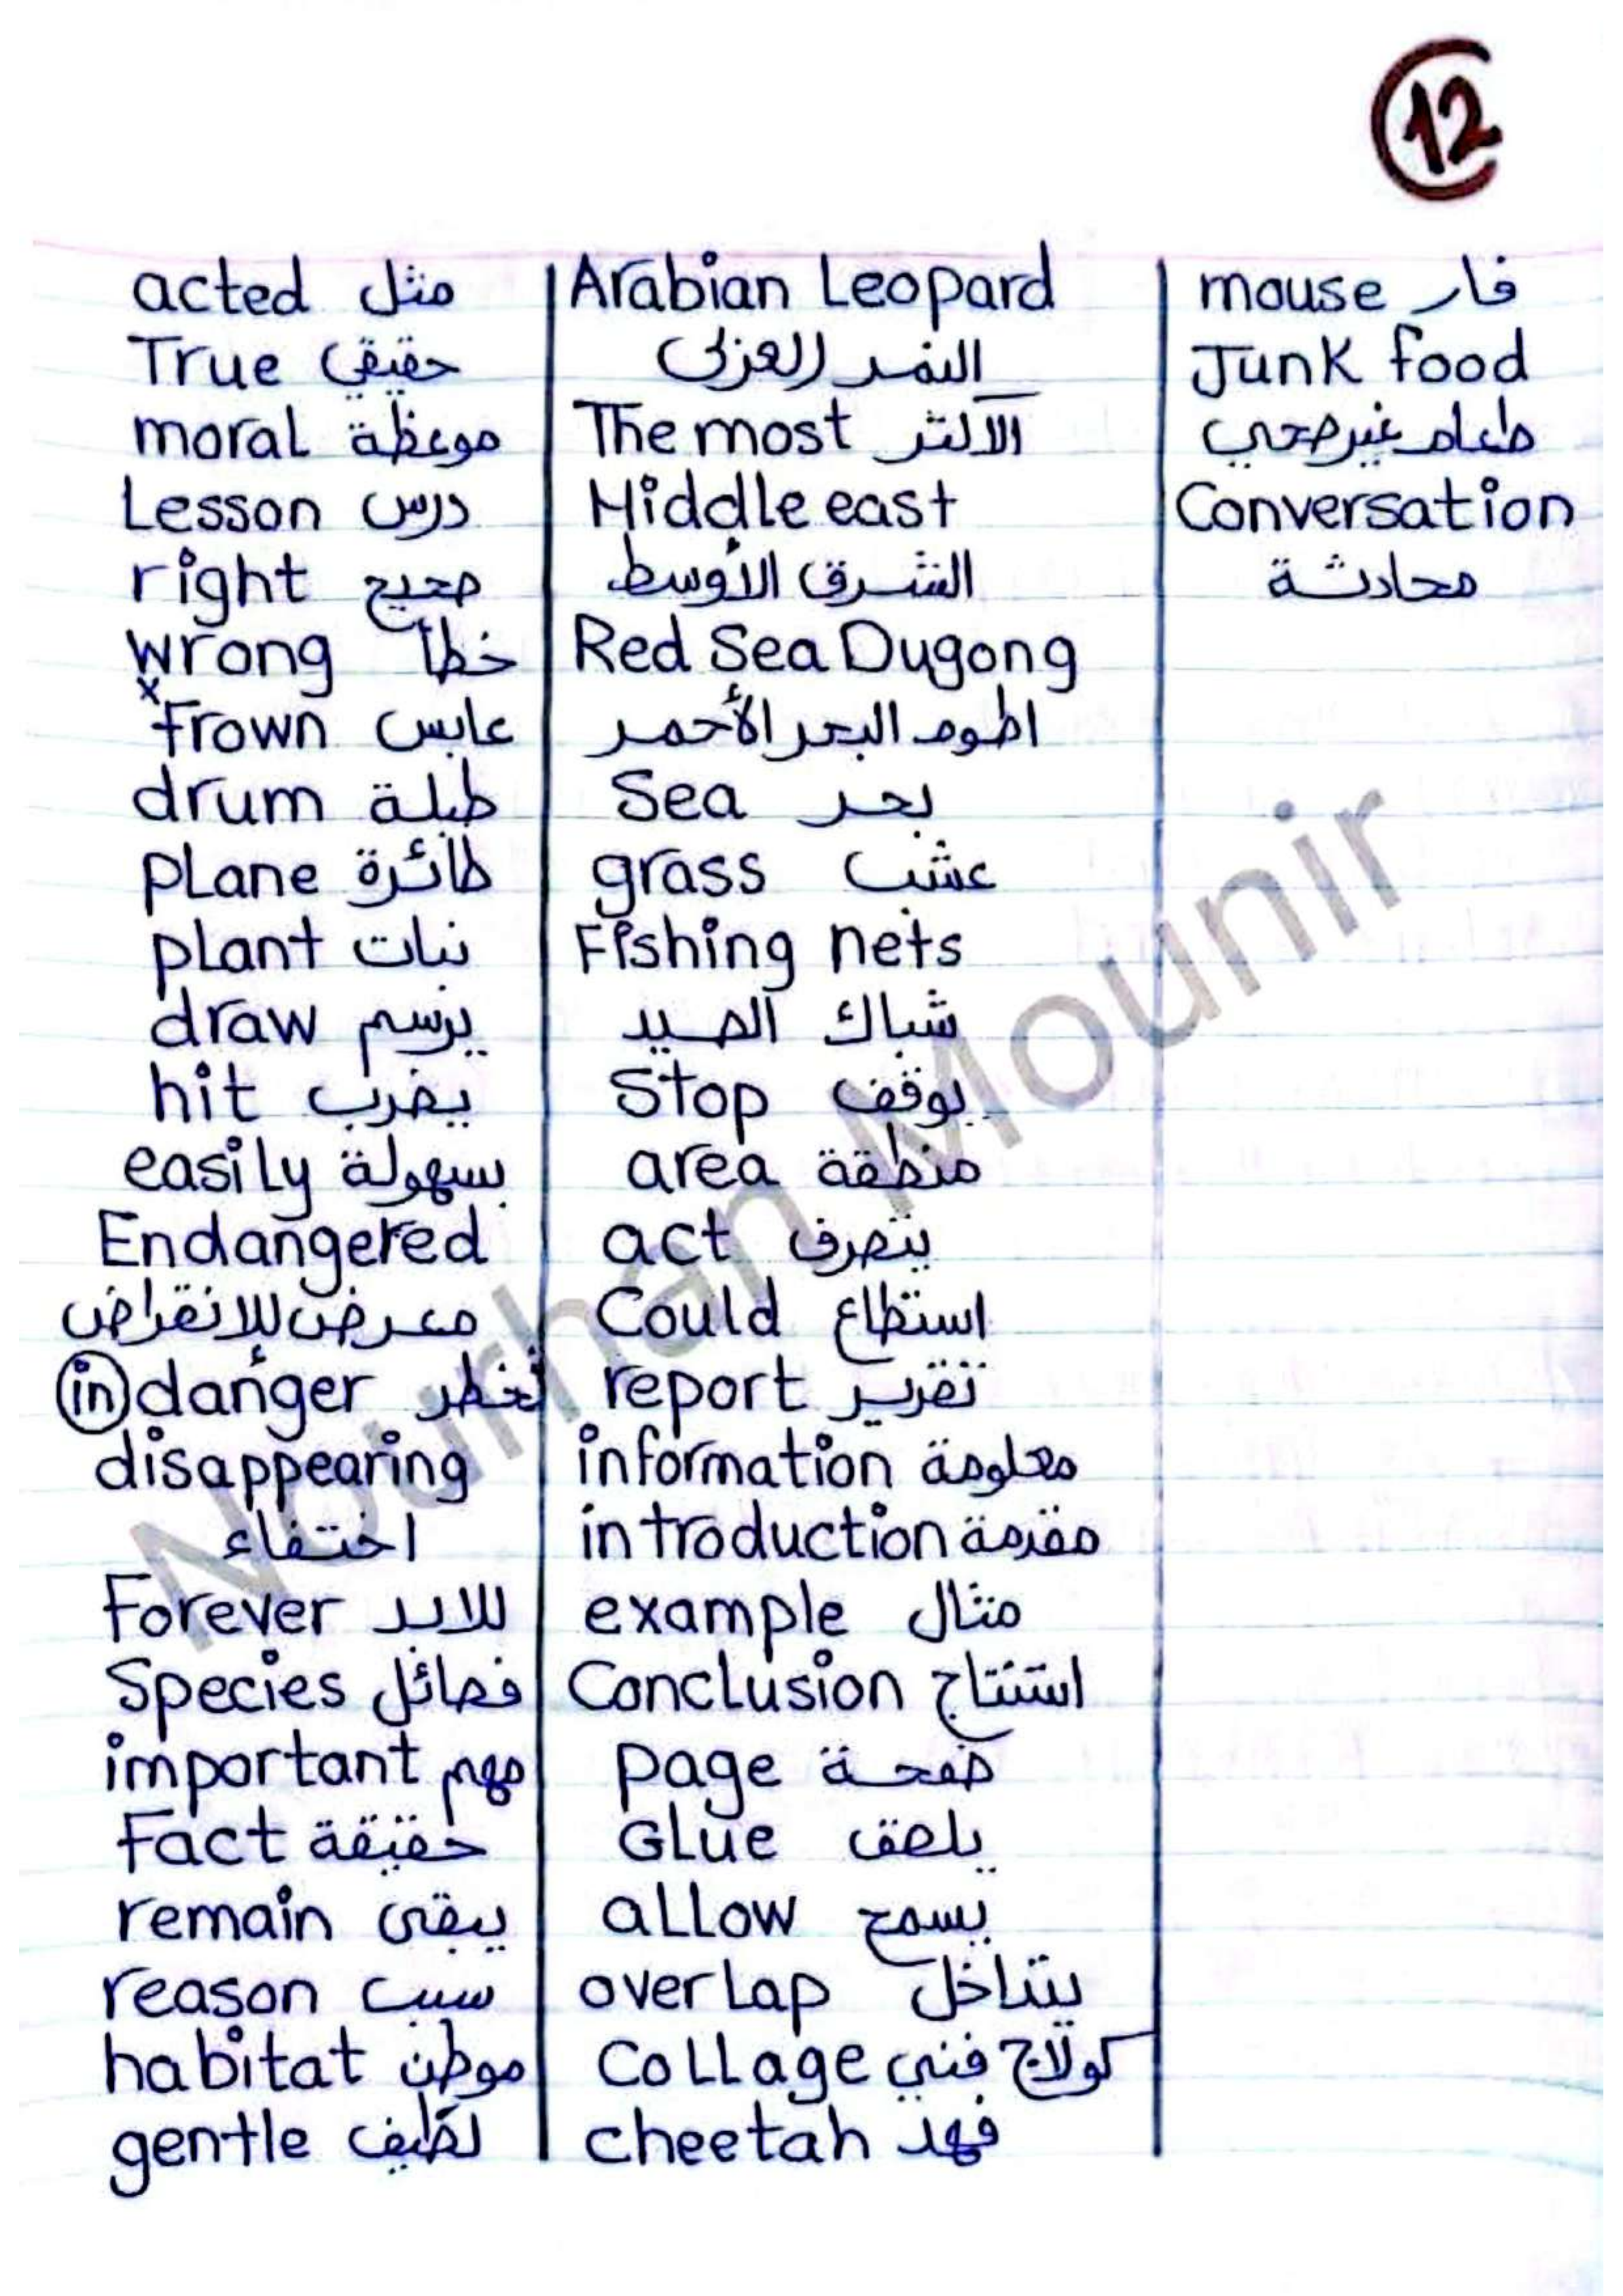 12
acted مثل
True حقيقي
moral موعظة
Lesson درس
right صحيح
wrong خطأ
x
frown عابس
drum طبلة
pLane طائرة
pLant نبات
draw يرسم
hit يضرب
easiLy بسهولة
Endangered
معرض للإنقراض
in danger لخطر
disappearing
اختفاء
Forever للابد
Species فصائل
important مهم
Fact حقيقة
remain يبقى
reason سبب
habitat موطن
gentle لطيف
Arabian Leopard
النمر العربى
The most الاكثر
Middle east
الشرق الأوسط
Red Sea Dugong
اطوم البحر الأحمر
Sea بحر
grass عشب
Fishing nets
شباك الصيد
Stop يوقف
area منطقة
act يتصرف
Could استطاع
report تقرير
information معلومة
introduction مقدمة
example مثال
Conclusion استنتاج
page صفحة
GLue يلصق
aLLow يسمح
overLap يتداخل
CoLLage كولاج فني
cheetah فهد
mouse فار
Junk food
طعام غير صحي
Conversation
محادثة
Nourhan Mounir